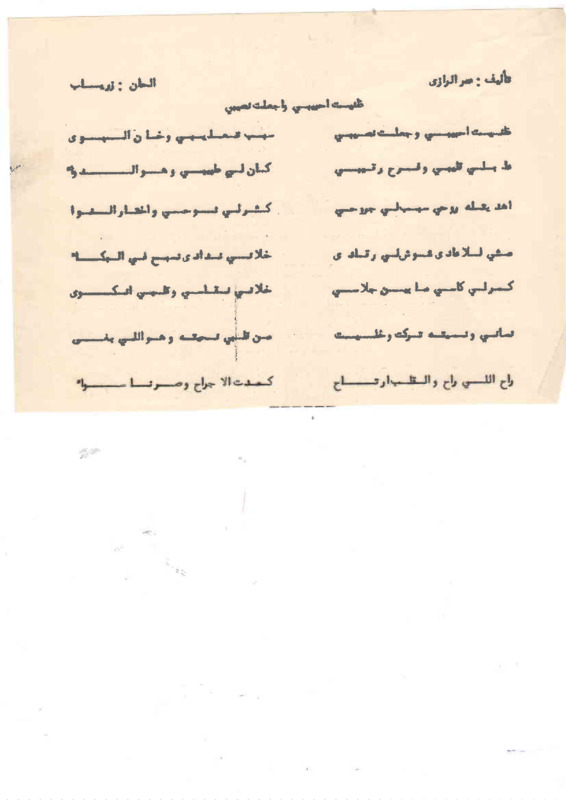 تأليف : عمر الرازى الحان : زرياب
ظنيت احبيبي واجعلت نصيبي
ظنيت احبيبي وجعلت نصيبي سبب تعذيبي وخان الهوى
بلي قلبي وفرح رقيبي كان لي طبيبي وهو الدواء
اهديتله روحي سبب لي جروحي كثر لي نوحي واختار النوا
مشي للاعادى شوش لي رقادى خلاني ننادى نسبح في البكاء
كسر لي كاسي ما بين جلاسي خلاني نقاسي وقلبي انكوى
نساني ونسيته تركت وخليت من قلبي نحيته وهو اللي بغى
راح اللي راح والقلب ارتاح كمدت الاجراح وصرنا سواء